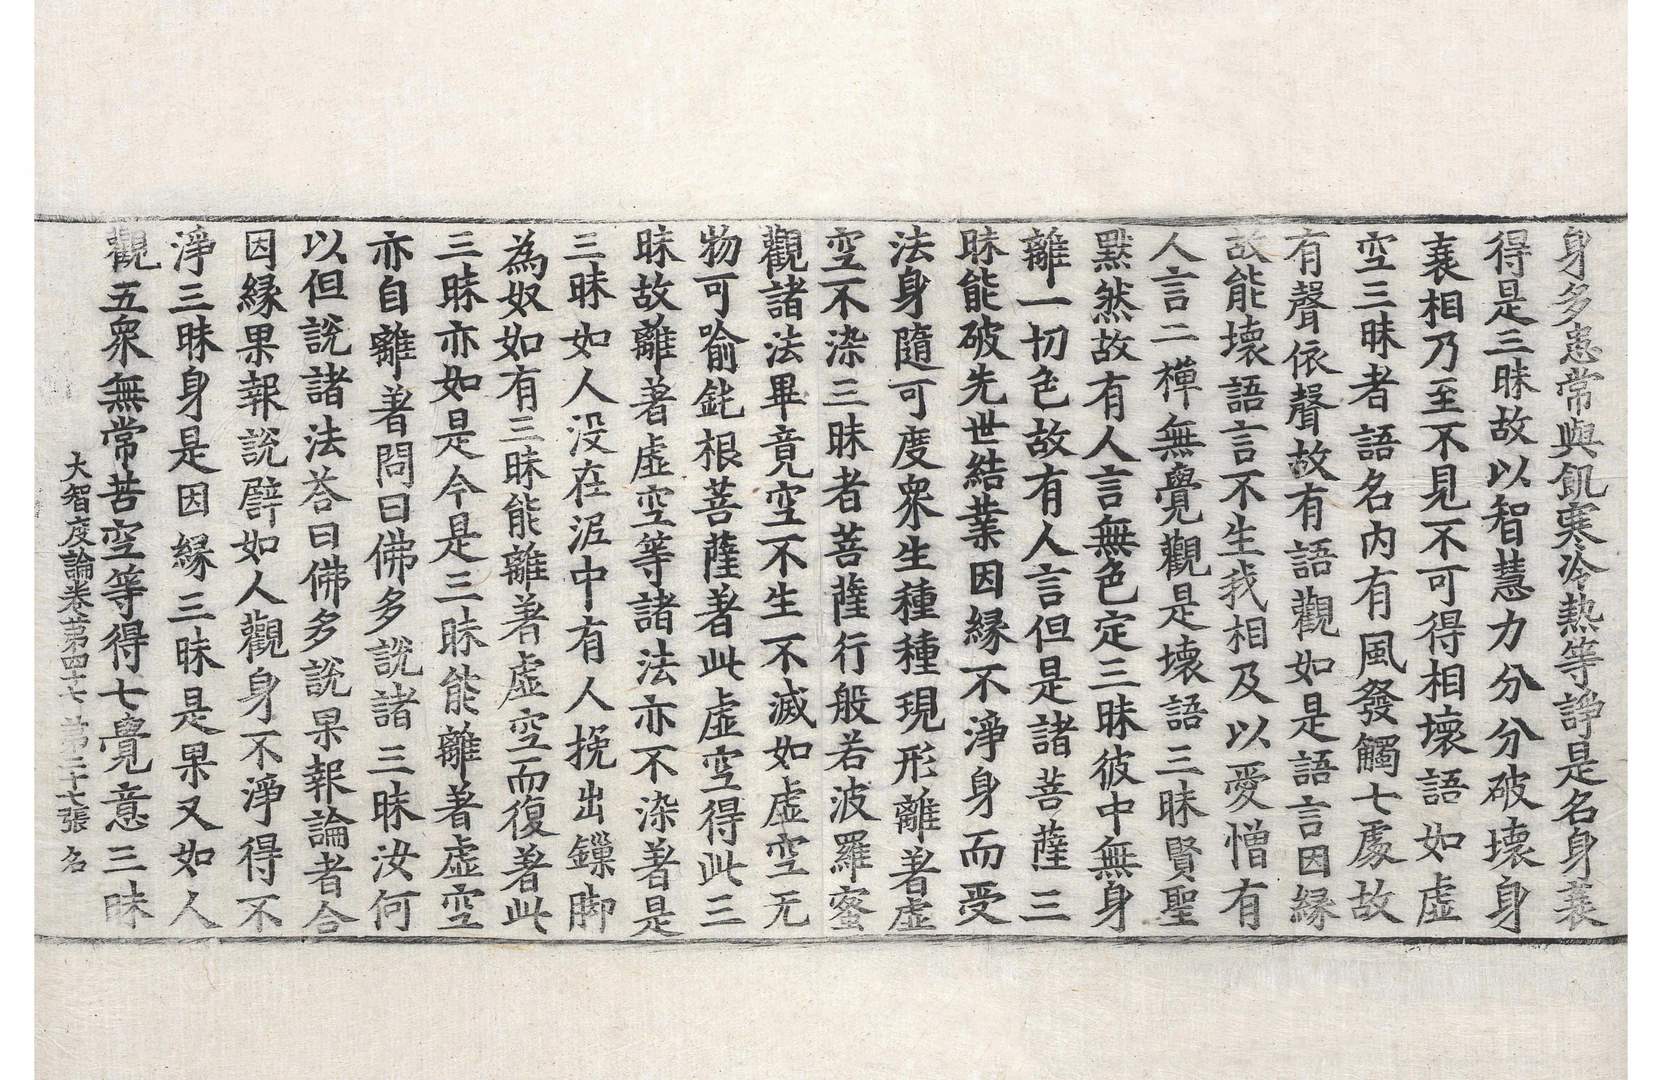 身多患常與飢寒冷熱等諍是名身衰
得是三昧故以智慧力分分破壞身
衰相乃至不見不可得相壞語如虛
空三昧者語名內有風發觸七處故
有聲依聲故有語觀如是語言因緣
故能壞語言不生我相及以愛憎有
人言二禪無覺觀是壞語三昧賢聖
默然故有人言無色定三昧彼中無身
離一切色故有人言但是諸菩薩三
昧能破先世結業因緣不淨身而受
法身隨可度眾生種種現形離著虛
空不染三昧者菩薩行般若波羅蜜
觀諸法畢竟空不生不滅如虛空无
物可喻鈍根菩薩著此虛空得此三
昧故離著虛空等諸法亦不染著是
三昧如人沒在泥中有人挽出鏁脚
為奴如有三昧能離著虛空而復著此
三昧亦如是今是三昧能離著虛空
亦自離著問曰佛多說諸三昧汝何
以但說諸法荅曰佛多說果報論者合
因緣果報說譬如人觀身不淨得不
淨三昧身是因緣三昧是果又如人
觀五眾無常苦空等得七覺意三昧
大智度論卷第四十七 第二十七張 名